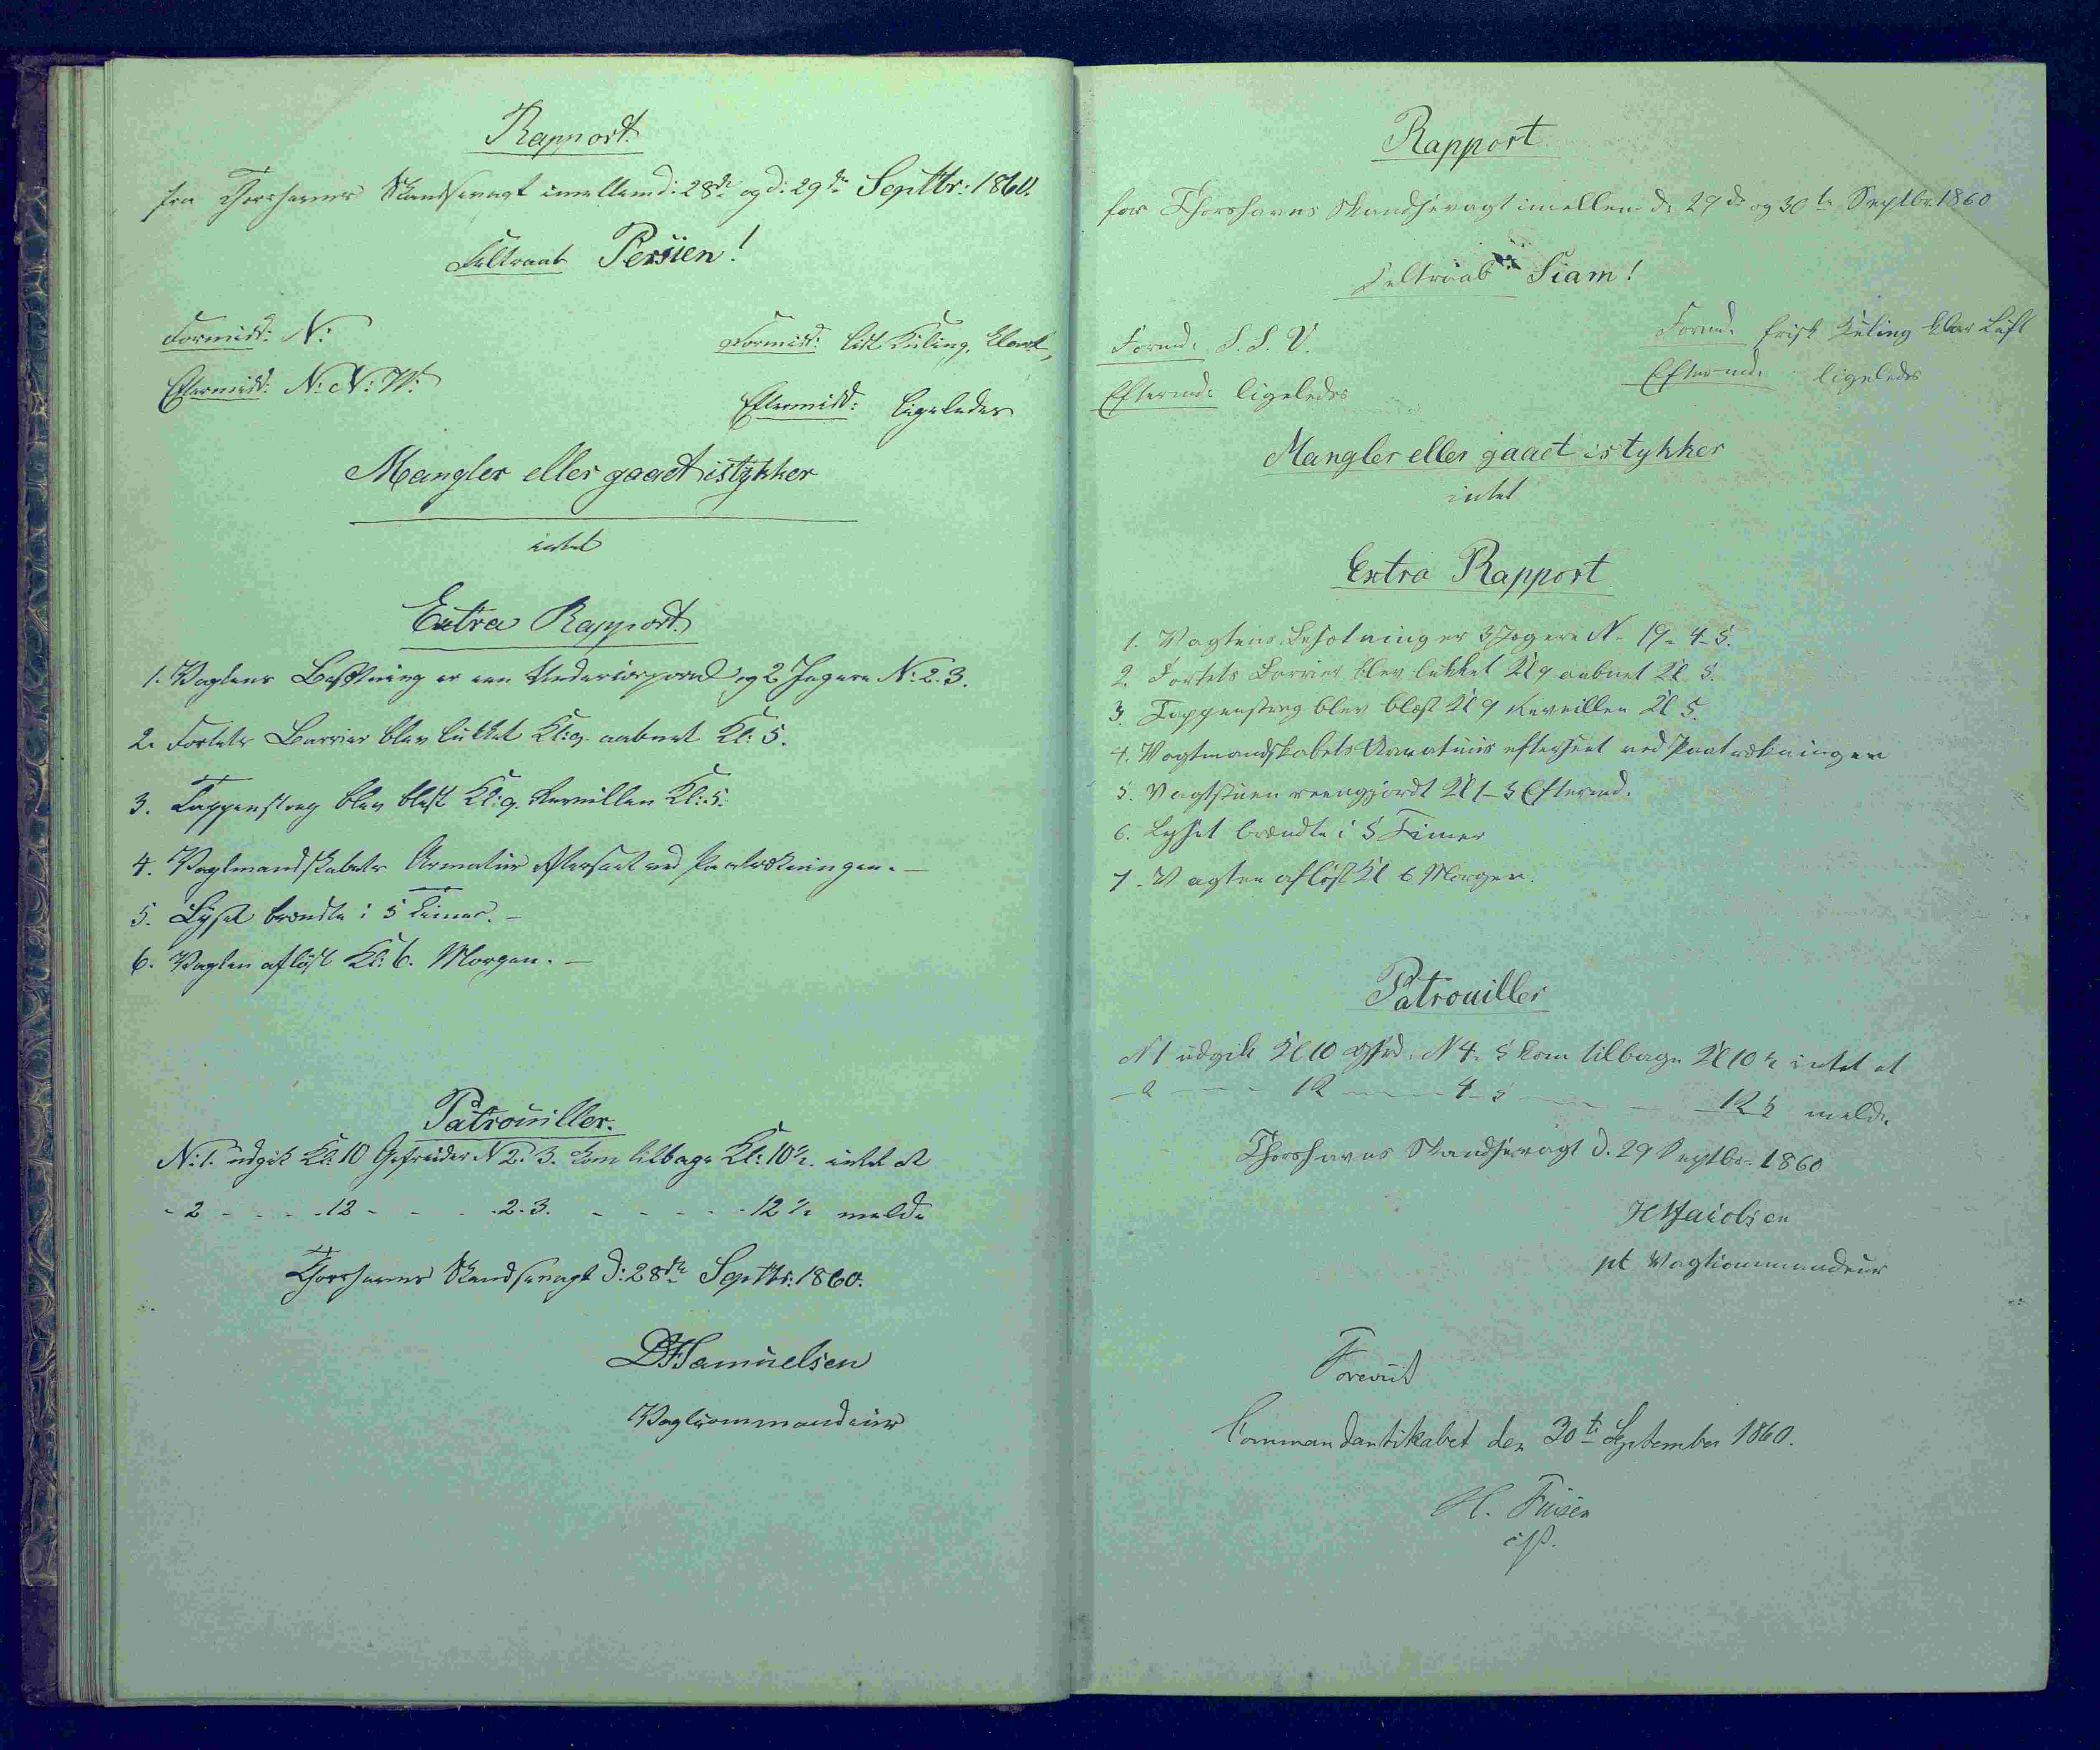 Rapport.
fra Thorshavns Skandsevagt imellem d: 28de og d: 29de Septbr: 1860.
Feltraab Persien!
Formidd: N:
Formidd: lidt Kuling, klart,
Eftermidd: N: N: W:
Eftermidd: ligeledes
Mangler eller gaaet istykker
intet
Extra Rapport.
1. Vagtens Besætning er een Undercorporal og 2 Jægere N: 2. 3.
2. Fortets Barrier blev lukket Kl: 9. aabnet Kl: 5.
3. Tappenstreg blev blæst Kl: 9. Reveillen Kl: 5.
4. Vagtmandskabets Armatur efterseet ved Paatrækningen. —
5. Lyset brændte i 5 Timer. —
6. Vagten afløst Kl: 6. Morgen. —
Patrouiller.
N: 1. udgik Kl: 10 Gefreider N 2. 3. kom tilbage Kl: 10½. intet at
- 2 - - - 12 - - - 2. 3. - - - - - 12½ melde
Thorshavns Skandsevagt d: 28de Septbr: 1860.
Samuelsen
Vagtcommandeur
Rapport
for Thorshavns Skandsevagt imellem d. 29de og 30te Septbr. 1860
Feltraab Siam!
Formd: S. S. V.
Formd: frisk Kuling klar Luft
Eftermd: ligeledes
Eftermd: ligeledes
Mangler eller gaaet istykker
intet
Extra Rapport
1. Vagtens Besætning er 3 Jægere N. 19. 4-5.
2. Fortets Barrier blev lukket Kl 9 aabnet Kl 5.
3. Tappenstreg blev blæst Kl 9 Reveillen Kl 5.
4. Vagtmandskabets Armaturs efterseet ved Paatrækningen
5. Vagtstuen reengjordt Kl 1-3 Eftermd.
6. Lyset brændte i 5 Timer
7. Vagten afløst Kl 6 Morgen.
Patrouiller
N 1 udgik Kl 10 N 4-5 kom tilbage Kl 10½ intet at
- 2 - - - 12 - - - 4-5 - - - - 12½ melde
Thorshavns Skandsevagt d. 29 Septbr. 1860
Jacobsen
pt Vagtcommandeur
Foreviist
Commandantskabet den 30te September 1860.